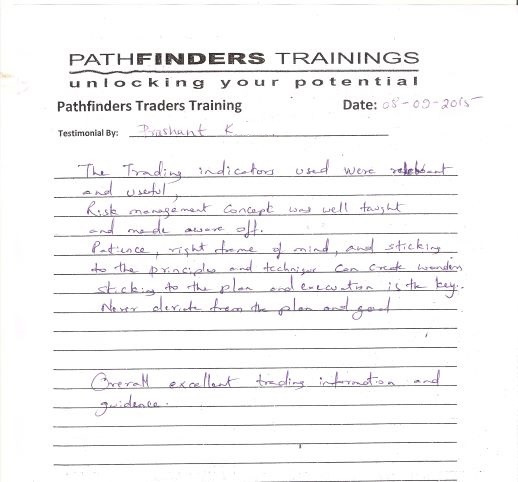 PATHFINDERS TRAININGS
unlocking your potential
Pathfinders Traders Training Date: 08-09-2015
Testimonial By: Prashant K
The Trading indicators used were relebant
and useful,
Risk management concept was well taught
and made aware off.
Patience, right frame of mind, and sticking
to the principles and technique can create wonders
sticking to the plan and execution is the key.
Never deviate from the plan and goal
Overall excellent trading information and
guidence.